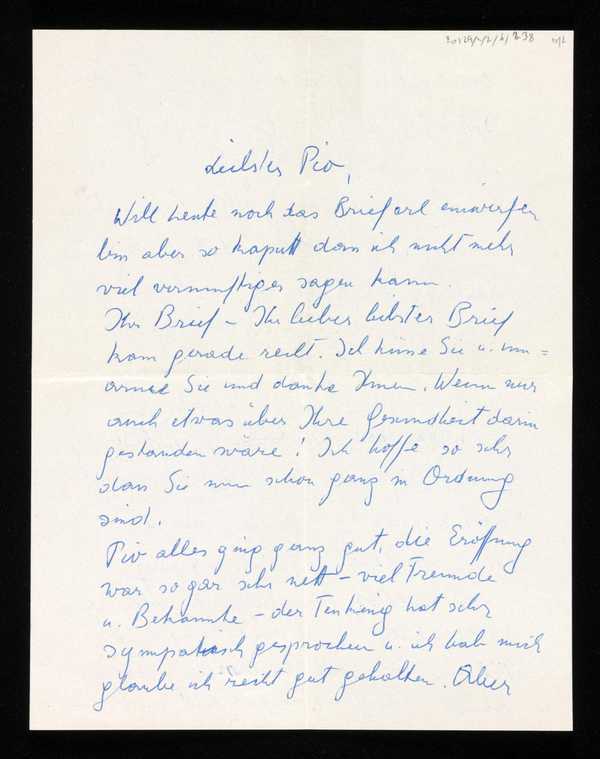 Liebster Pio,
Will heute noch das Brieferl einwerfen
bin aber so kaputt dass ich nicht mehr
viel vernünftiges sagen kann.
Ihr Brief – Ihr lieber liebster Brief
kam gerade recht. Ich küsse Sie u. um=
arme Sie und danke Ihnen. Wenn nur
auch etwas über Ihre Gesundheit darin
gestanden wäre! Ich hoffe so sehr
dass Sie nun schon ganz in Ordnung
sind.
Pio alles ging ganz gut, die Eröffnung
war sogar sehr nett – viel Freunde
u. Bekannte – der hat sehr
sympathisch gesprochen u. ich hab mich
glaube ich recht gut gehalten. Aber